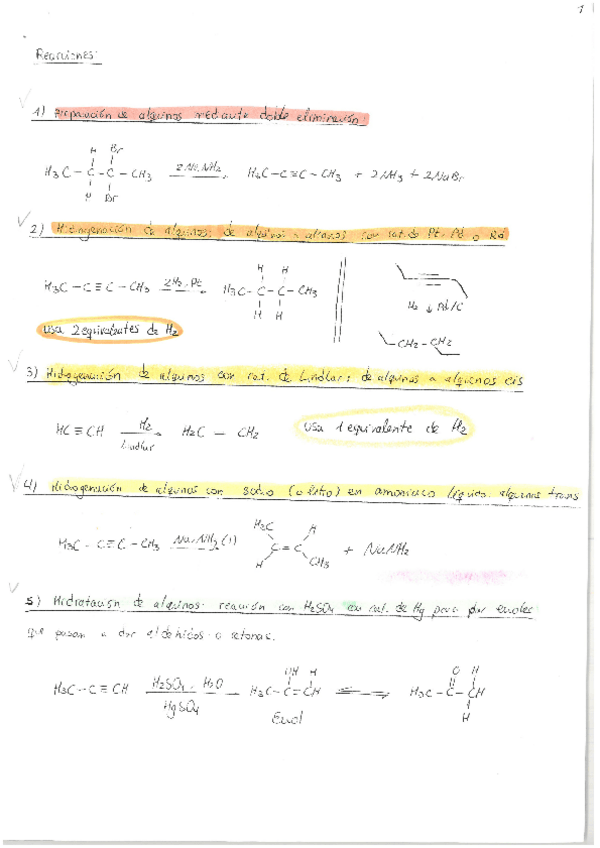 1
Reacciones:
1) Preparación de alquinos mediante doble eliminación:
H Br
H3C - C - C - CH3 2NaNH2 H3C - C ≡ C - CH3 + 2NH3 + 2NaBr
H Br
2) Hidrogenación de alquinos: de alquinos a alcanos con cat. de Pt, Pd o Rd
H H
H3C - C ≡ C - CH3 2H2, Pt H3C - C - C - CH3
H H
H2 ↓ Pd/C
CH2 - CH2
usa 2 equivalentes de H2
3) Hidrogenación de alquinos con cat. de Lindlar: de alquinos a alquenos cis
HC ≡ CH H2 H2C - CH2 usa 1 equivalente de H2
Lindlar
4) Hidrogenación de alquinos con sodio (o litio) en amoniaco líquido: alquenos trans
H3C H
H3C - C ≡ C - CH3 Na, NH3 (l) C = C + NaNH2
H CH3
5) Hidratación de alquinos: reacción con H2SO4 con cat. de Hg para dar enoles
que pasan a dar aldehídos o cetonas.
OH H O H
H3C - C ≡ CH H2SO4, H2O H3C - C = CH ⇌ H3C - C - CH
HgSO4 H
Enol